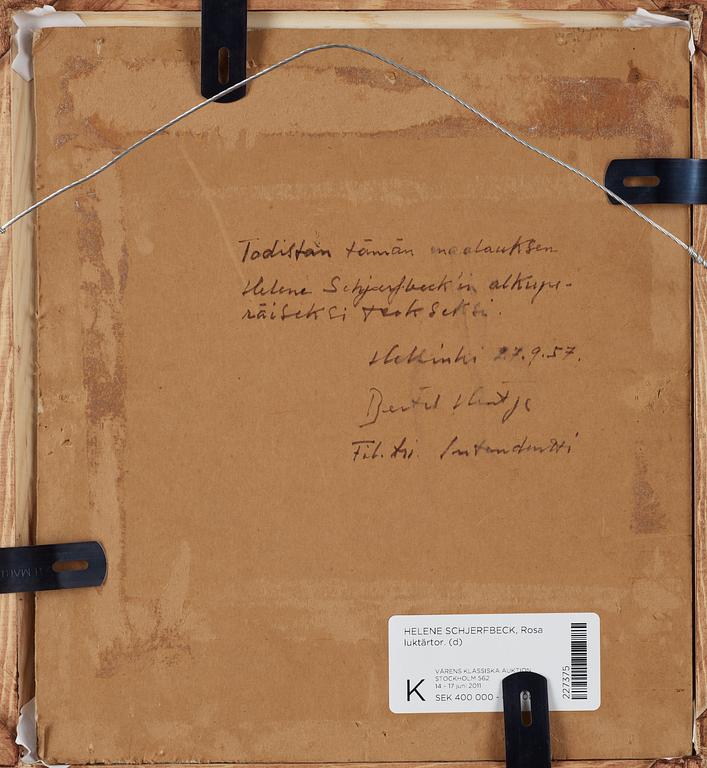 Todistan tämän maalauksen
Helene Schjerfbeck'in alkupe-
räiseksi teokseksi.
Helsinki 27.9.57.
Bertel Hintze
Fil. tri. Intendentti
HELENE SCHJERFBECK, Rosa
luktärtor. (d)
VÅRENS KLASSISKA AUKTION
STOCKHOLM 562
14 - 17 juni 2011
K
SEK 400 000 -
227375